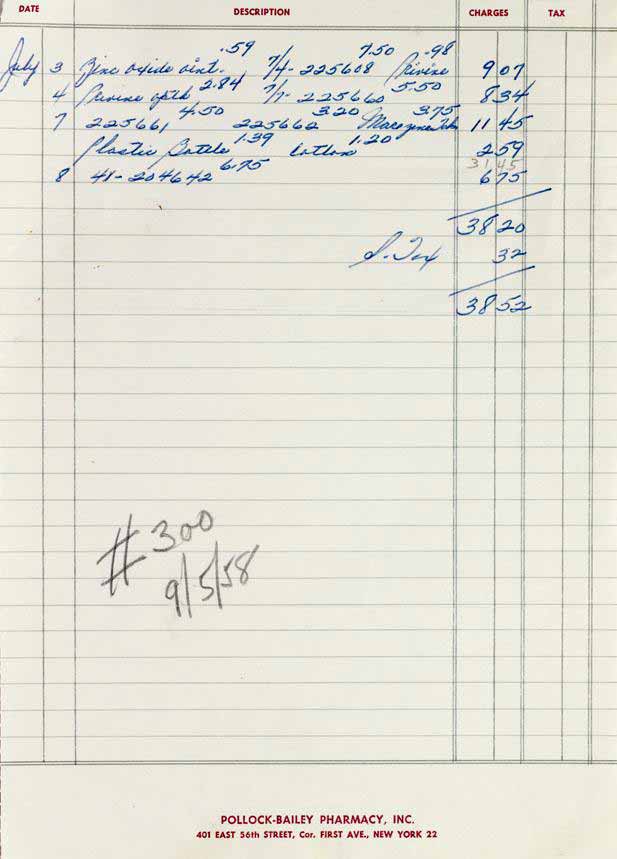 DATE DESCRIPTION CHARGES TAX
.59 7.50 .98
July 3 Zinc oxide oint. 7/4- 225608 Privine 9 07
2.84 5.50
4 Privine opth 7/7- 225660 8 34
4.50 3.20 3.75
7 225661 225662 11 45
1.39 1.20
Plastic Bottle Cotton 2 59
31 45
6.75
8 41-204642 6 75
38 20
S. Tax 32
38 52
#300
9/5/58
POLLOCK-BAILEY PHARMACY, INC.
401 EAST 56th STREET, Cor. FIRST AVE., NEW YORK 22